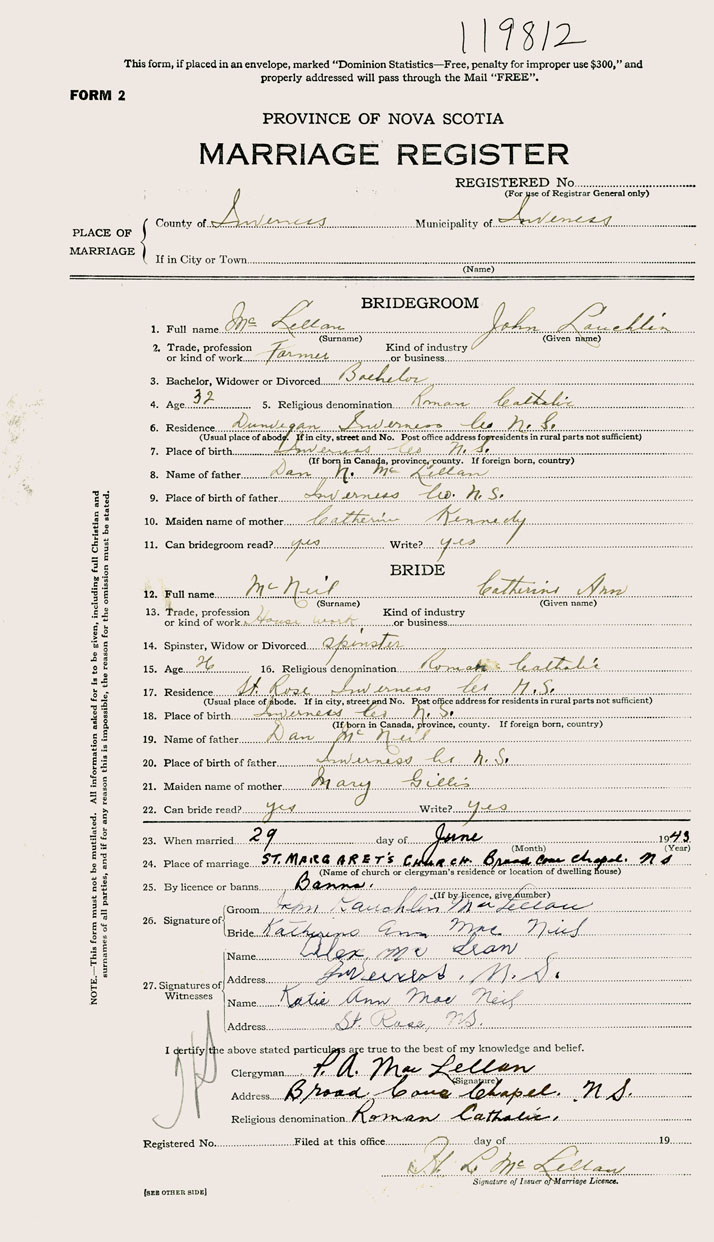 119812
This form, if placed in an envelope, marked "Dominion Statistics—Free, penalty for improper use $300," and
properly addressed will pass through the Mail "FREE".
FORM 2
PROVINCE OF NOVA SCOTIA
MARRIAGE REGISTER
REGISTERED No.
(For use of Registrar General only)
PLACE OF MARRIAGE
County of Inverness Municipality of Inverness
If in City or Town
(Name)
BRIDEGROOM
1. Full name Mc Lellan John Lauchlin
(Surname) (Given name)
2. Trade, profession or kind of work Farmer Kind of industry or business
3. Bachelor, Widower or Divorced Bachelor
4. Age 32 5. Religious denomination Roman Catholic
6. Residence Dunvegan Inverness Co N.S.
(Usual place of abode. If in city, street and No. Post office address for residents in rural parts not sufficient)
7. Place of birth Inverness Co N.S.
(If born in Canada, province, county. If foreign born, country)
8. Name of father Dan N. Mc Lellan
9. Place of birth of father Inverness Co. N.S.
10. Maiden name of mother Catherin Kennedy
11. Can bridegroom read? yes Write? yes
BRIDE
12. Full name McNeil Catherine Ann
(Surname) (Given name)
13. Trade, profession or kind of work House work Kind of industry or business
14. Spinster, Widow or Divorced spinster
15. Age 26 16. Religious denomination Roman Catholic
17. Residence St. Rose Inverness Co N.S.
(Usual place of abode. If in city, street and No. Post office address for residents in rural parts not sufficient)
18. Place of birth Inverness Co N.S.
(If born in Canada, province, county. If foreign born, country)
19. Name of father Dan McNeil
20. Place of birth of father Inverness Co N.S.
21. Maiden name of mother Mary Gillis
22. Can bride read? yes Write? yes
23. When married 29 day of June 1943
(Month) (Year)
24. Place of marriage ST. MARGARET'S CHURCH. Broad Cove Chapel. NS
(Name of church or clergyman's residence or location of dwelling house)
25. By licence or banns Banns.
(If by licence, give number)
26. Signature of
Groom John Lauchlin MacLellan
Bride Katherine Ann Mac Neil
27. Signatures of Witnesses
Name Alex Mc Lean
Address Inverness, N.S.
Name Katie Ann Mac Neil
Address St. Rose, NS.
I certify the above stated particulars are true to the best of my knowledge and belief.
Clergyman P.A. MacLellan
(Signature)
Address Broad Cove Chapel. N S.
Religious denomination Roman Catholic.
Registered No. Filed at this office day of 19
Mc Lellan
Signature of Issuer of Marriage Licence.
[SEE OTHER SIDE]
NOTE.—This form must not be mutilated. All information asked for is to be given, including full Christian and
surnames of all parties, and if for any reason this is impossible, the reason for the omission must be stated.